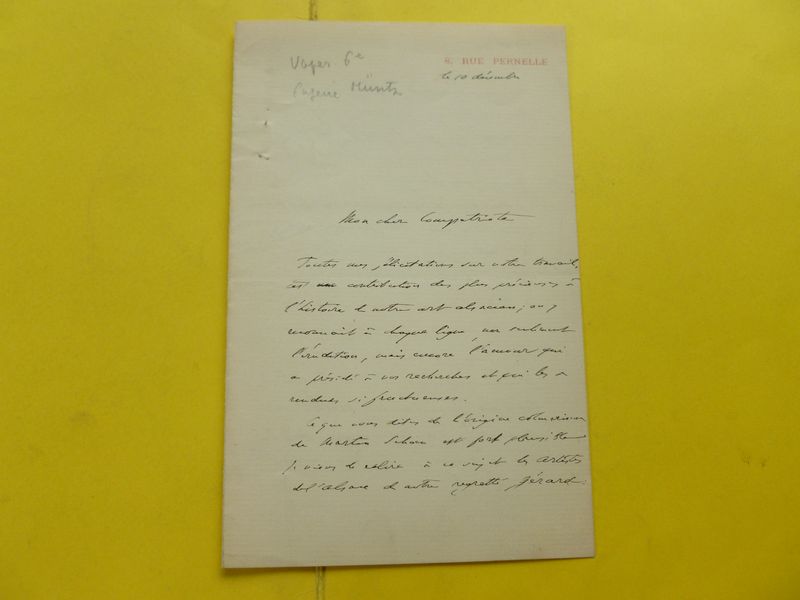 Voyer 6e
Eugene Müntz
6, RUE PERNELLE
le 10 décembre
Mon cher Compatriote
Toutes mes félicitations sur votre travail,
c'est une contribution des plus précieuses à
l'histoire de notre art alsacien; on y
reconnait à chaque ligne, non seulement
l'érudition, mais encore l'amour qui
a présidé à vos recherches et qui les a
rendues si fructueuses.
Ce que vous dites de l'origine colmarienne
de Martin Schoen est fort plausible
Je viens de relire à ce sujet les artistes
de l'alsace de notre regretté Gérard: